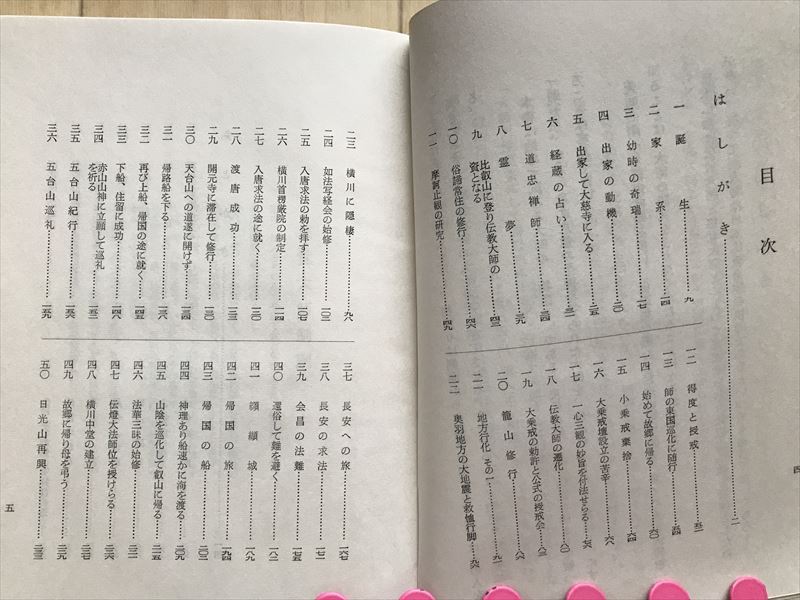 目次
はしがき……二
一 誕生……九
二 家系……一四
三 幼時の奇瑞……一七
四 出家の動機……二〇
五 出家して大慈寺に入る……二五
六 経蔵の占い……三一
七 道忠禅師……三四
八 霊夢……三九
九 比叡山に登り伝教大師の
資となる……四三
一〇 俗諦常住の修行……四六
一一 摩訶止観の研究……四九
一二 得度と授戒……五一
一三 師の東国巡化に随行……五四
一四 始めて故郷に帰る……六〇
一五 小乗戒棄捨……六四
一六 大乗戒壇設立の苦辛……六八
一七 一心三観の妙旨を付法せらる……七六
一八 伝教大師の遷化……八〇
一九 大乗戒の勅許と公式の授戒会……八三
二〇 籠山修行……八六
二一 地方行化 その一……九一
二二 奥羽地方の大地震と救恤行脚……九六
四
二三 横川に隠棲……九八
二四 如法写経会の始修……一〇三
二五 入唐求法の勅を拝す……一〇七
二六 横川首楞厳院の制定……一一四
二七 入唐求法の途に就く……一二〇
二八 渡唐成功……一二三
二九 開元寺に滞在して修行……一三〇
三〇 天台山への道遂に開けず……一三四
三一 帰路船を下る……一三八
三二 再び上船、帰国の途に就く……一四五
三三 下船、住留に成功……一四八
三四 赤山山神に立願して巡礼
を祈る……一五二
三五 五台山紀行……一五六
三六 五台山巡礼……一五九
三七 長安への旅……一六七
三八 長安の求法……一七一
三九 会昌の法難……一七五
四〇 還俗して難を避く……一八二
四一 顔顛城……一八九
四二 帰国の旅……一九四
四三 帰国の船……二〇三
四四 神理あり船速かに海を渡る……二〇九
四五 山陰を巡化して叡山に帰る……二一五
四六 法華三昧の始修……二二三
四七 伝燈大法師位を授けらる……二二六
四八 横川中堂の建立……二二七
四九 故郷に帰り母を弔う……二二九
五〇 日光山再興……二三三
五